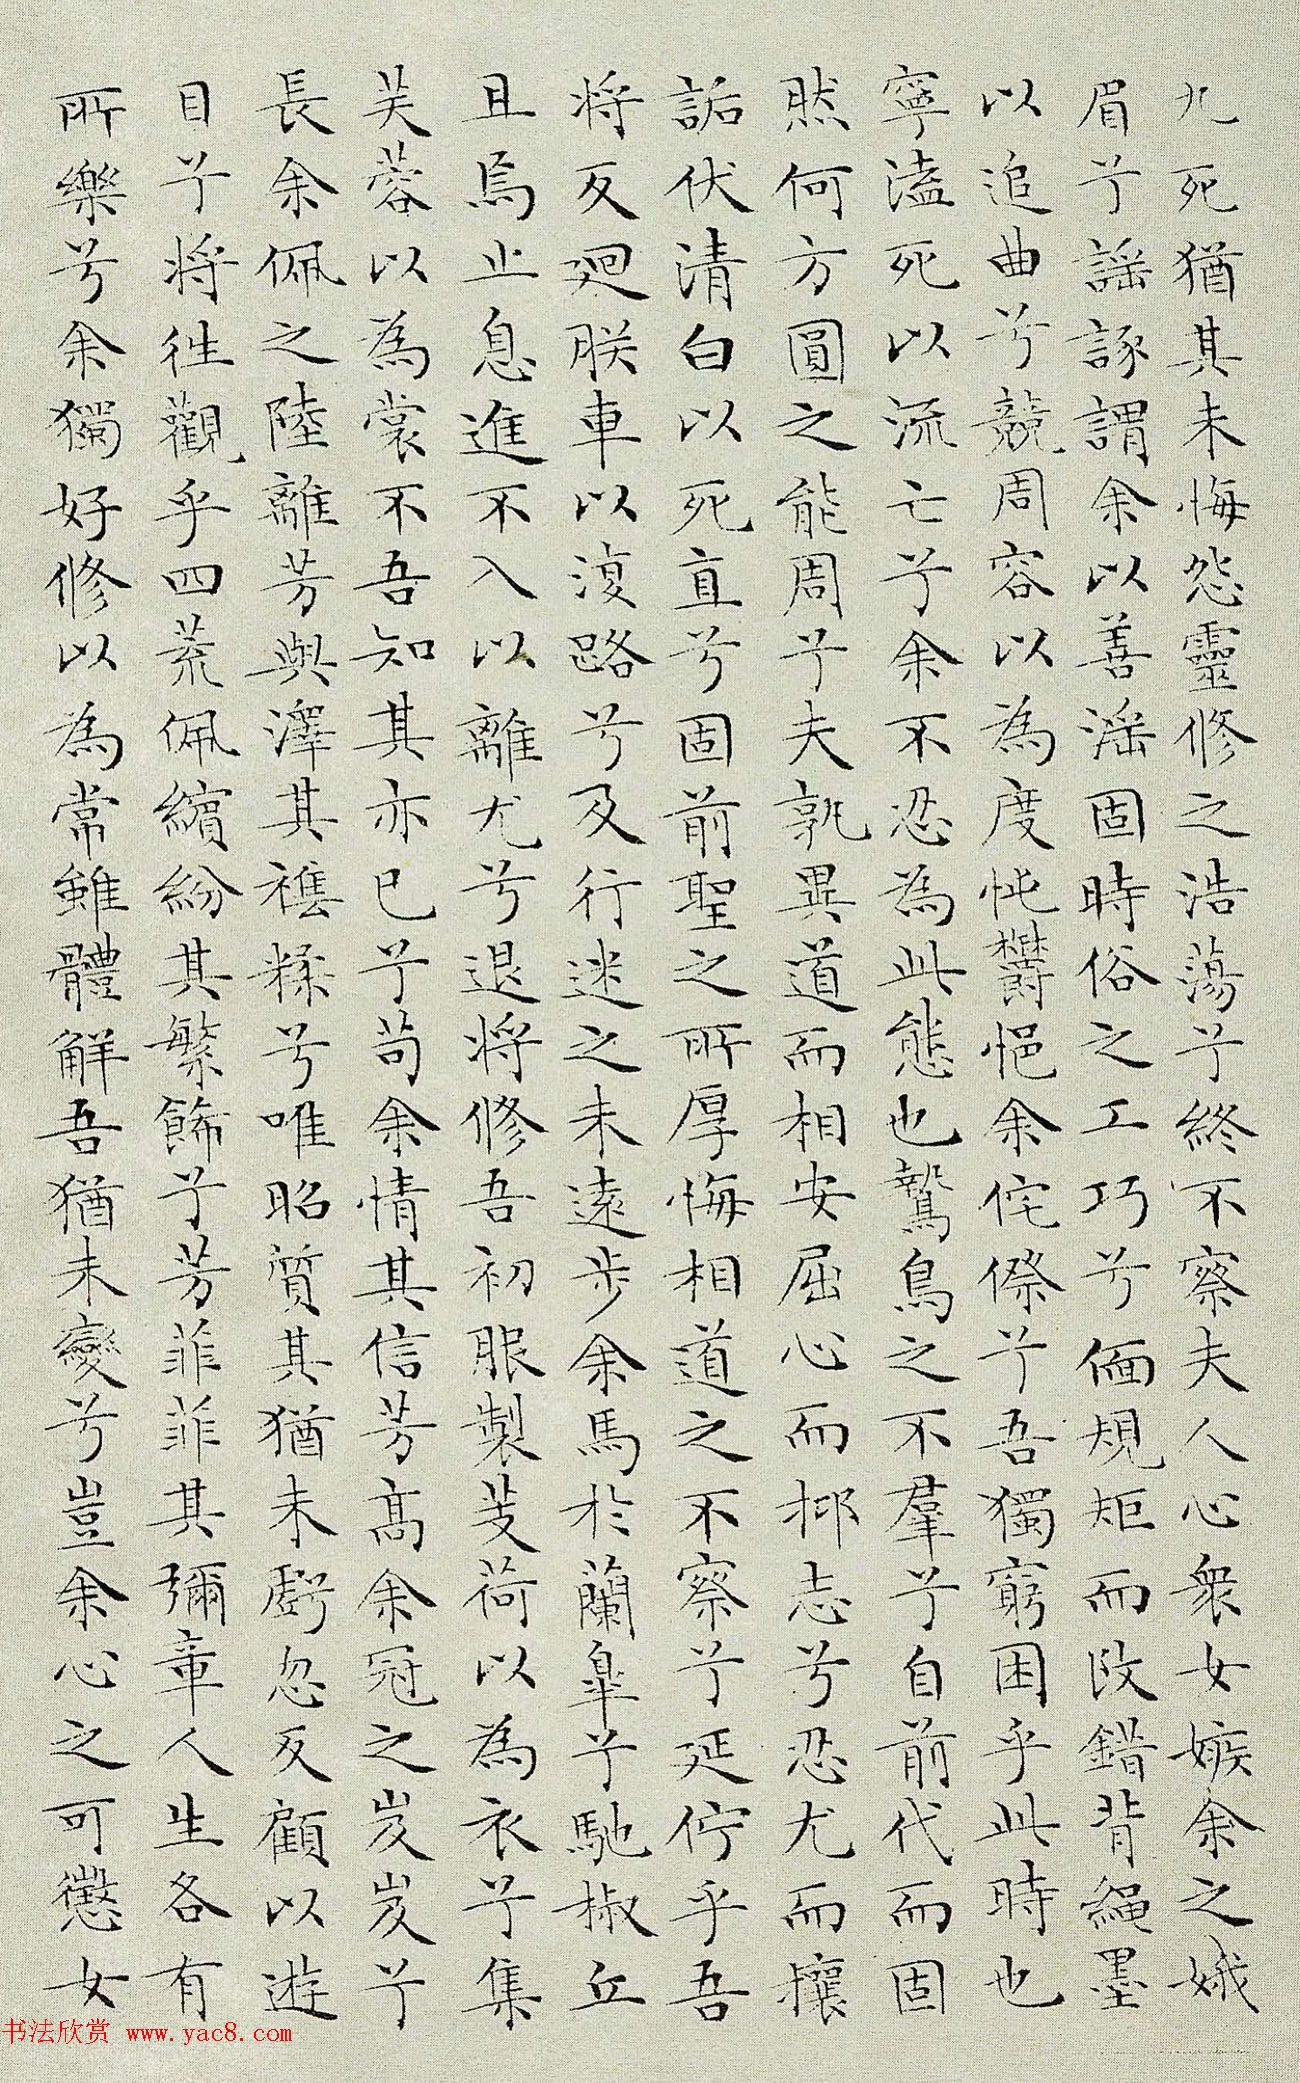 九死猶其未悔怨靈修之浩蕩兮終不察夫人心衆女嫉余之娥
眉兮謡諑謂余以善滛固時俗之工巧兮偭規矩而改錯背繩墨
以追曲兮競周容以為度忳欝悒余侘傺兮吾獨窮困乎此時也
寧溘死以流亡兮余不忍為此態也鷙鳥之不羣兮自前代而固
然何方圓之能周兮夫孰異道而相安屈心而抑志兮忍尤而攘
詬伏清白以死直兮固前聖之所厚悔相道之不察兮延佇乎吾
將反廻朕車以復路兮及行迷之未遠步余馬於蘭臯兮馳椒丘
且焉止息進不入以離尤兮退將修吾初服製芰荷以為衣兮集
芙蓉以為裳不吾知其亦已兮苟余情其信芳高余冠之岌岌兮
長余佩之陸離芳與澤其襍糅兮唯昭質其猶未虧忽反顧以遊
目兮將往觀乎四荒佩繽紛其繁飾兮芳菲菲其彌章人生各有
所樂兮余獨好修以為常雖體解吾猶未變兮豈余心之可懲女
书法欣赏 www.yac8.com